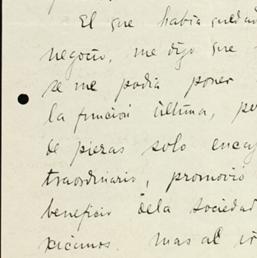 El que había quedad
negocio, me dijo que
se me podia poner
la funcion ultima, pe
de piezas solo encaj
traordinario, promovió
beneficio dela sociedad
xicanos. Mas al ir